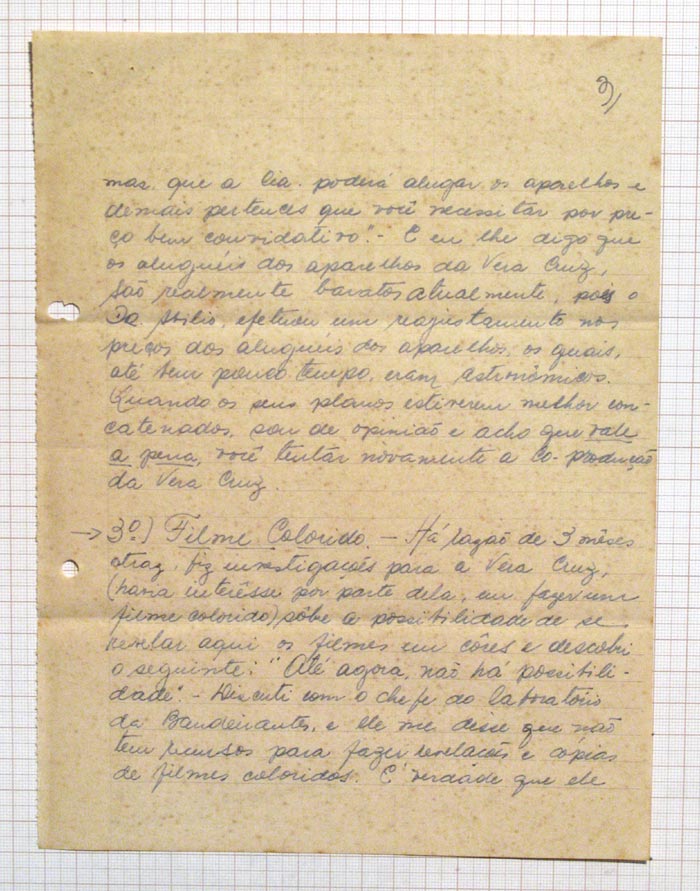 3)
mas que a Cia. poderá alugar os aparelhos e
demais pertences que você necessitar por pre-
ço bem convidativo". - E eu lhe digo que
os aluguéis dos aparelhos da Vera Cruz,
são realmente baratos atualmente, pois o
Abilio, efetuou um reajustamento nos
preços dos aluguéis dos aparelhos, os quais,
até bem pouco tempo, eram astronômicos.
Quando os seus planos estiverem melhor con-
catenados, sou de opinião e acho que vale
a pena, você tentar novamente a Co-produção
da Vera Cruz.
→ 3º) Filme Colorido. - Há razão de 3 mêses
atraz fiz investigações para a Vera Cruz,
(havia interêsse por parte dela, em fazer um
filme colorido) sôbe a possibilidade de se
revelar aqui os filmes em côres e descobri
o seguinte: "Até agora, não há possibili-
dade". - Discuti com o chefe do laboratório
da Bandeirantes, e ele me disse que não
tem recursos para fazer revelações e cópias
de filmes coloridos. E' verdade que ele